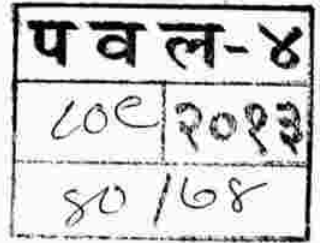 प व ल-४
८०९ २०१३
४०/७४